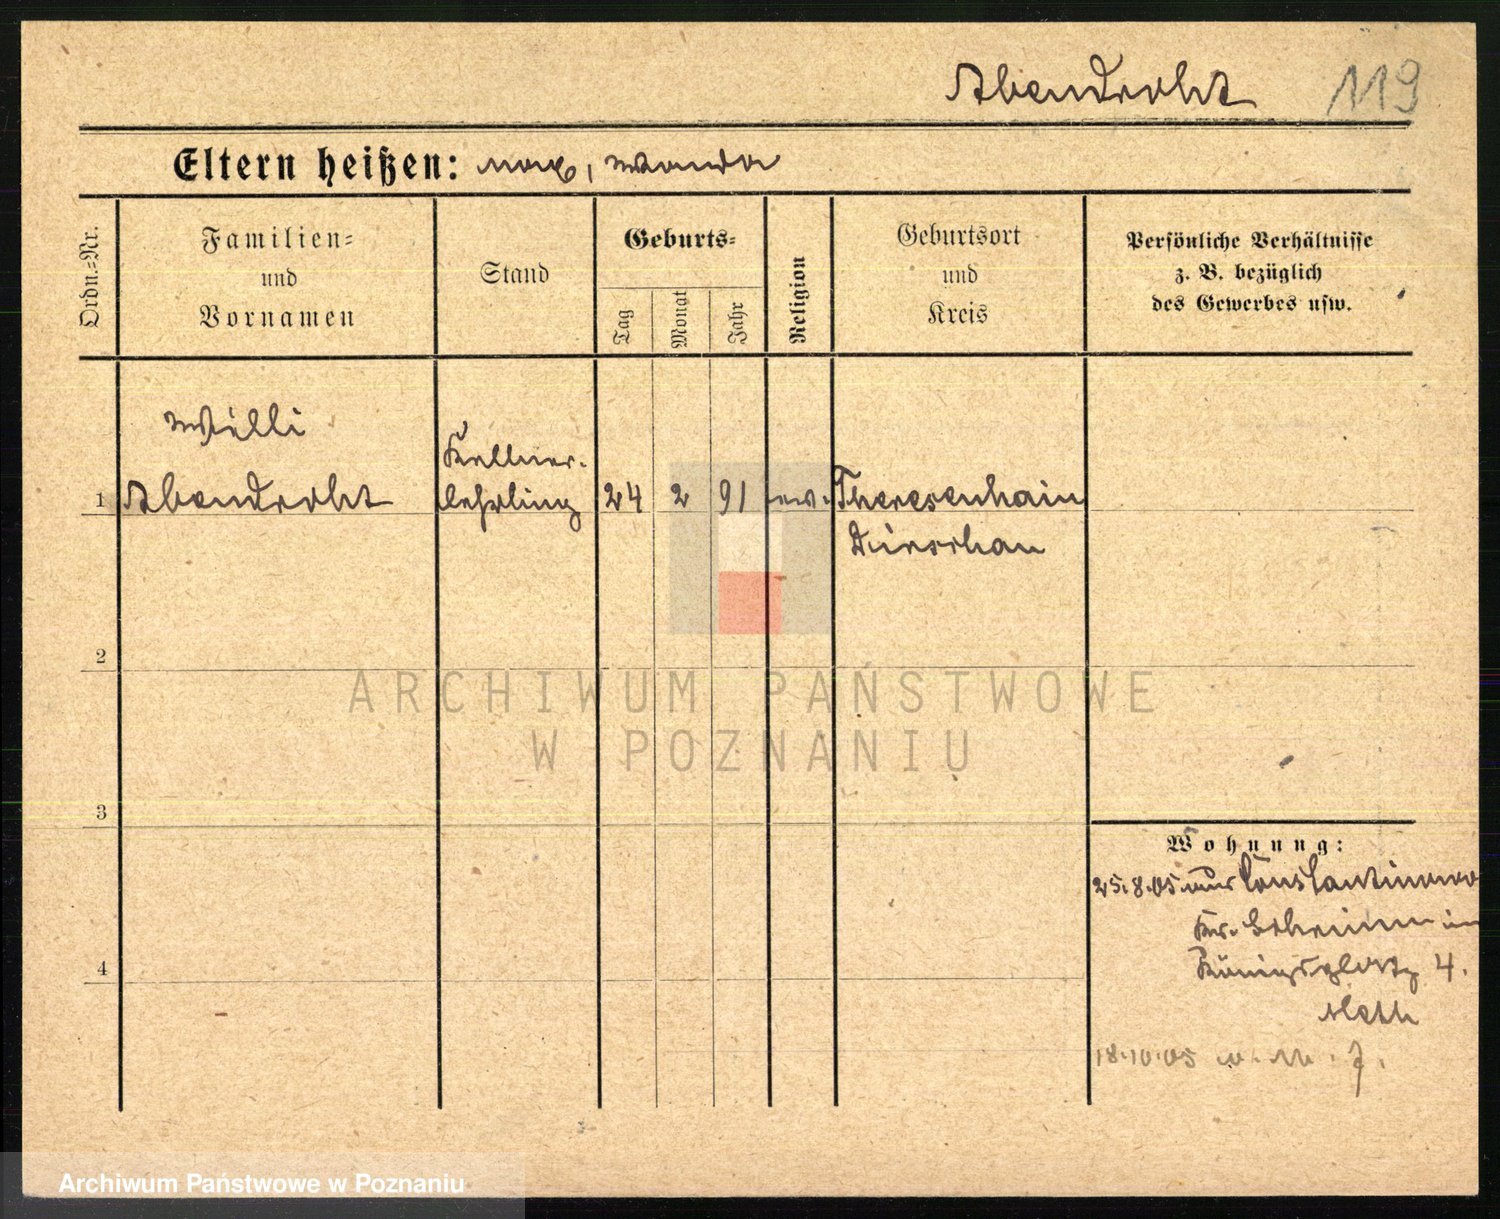 Abendroht 119
Eltern heißen: Max, Wanda
Ordn.=Nr.
Familien=
und
Vornamen
Stand
Geburts=
Tag
Monat
Jahr
Religion
Geburtsort
und
Kreis
Persönliche Verhältnisse
z. B. bezüglich
des Gewerbes usw.
Willi
Kellner-
1 Abendroht lehrling 24 2 91 ev. Theresenhain
Dirschau
2
ARCHIWUM PAŃSTWOWE
W POZNANIU
3
Wohnung:
25.8.05 aus Constantinowo
Kr. Schrimm in
Königsplatz 4.
4
18.10.05
Archiwum Państwowe w Poznaniu